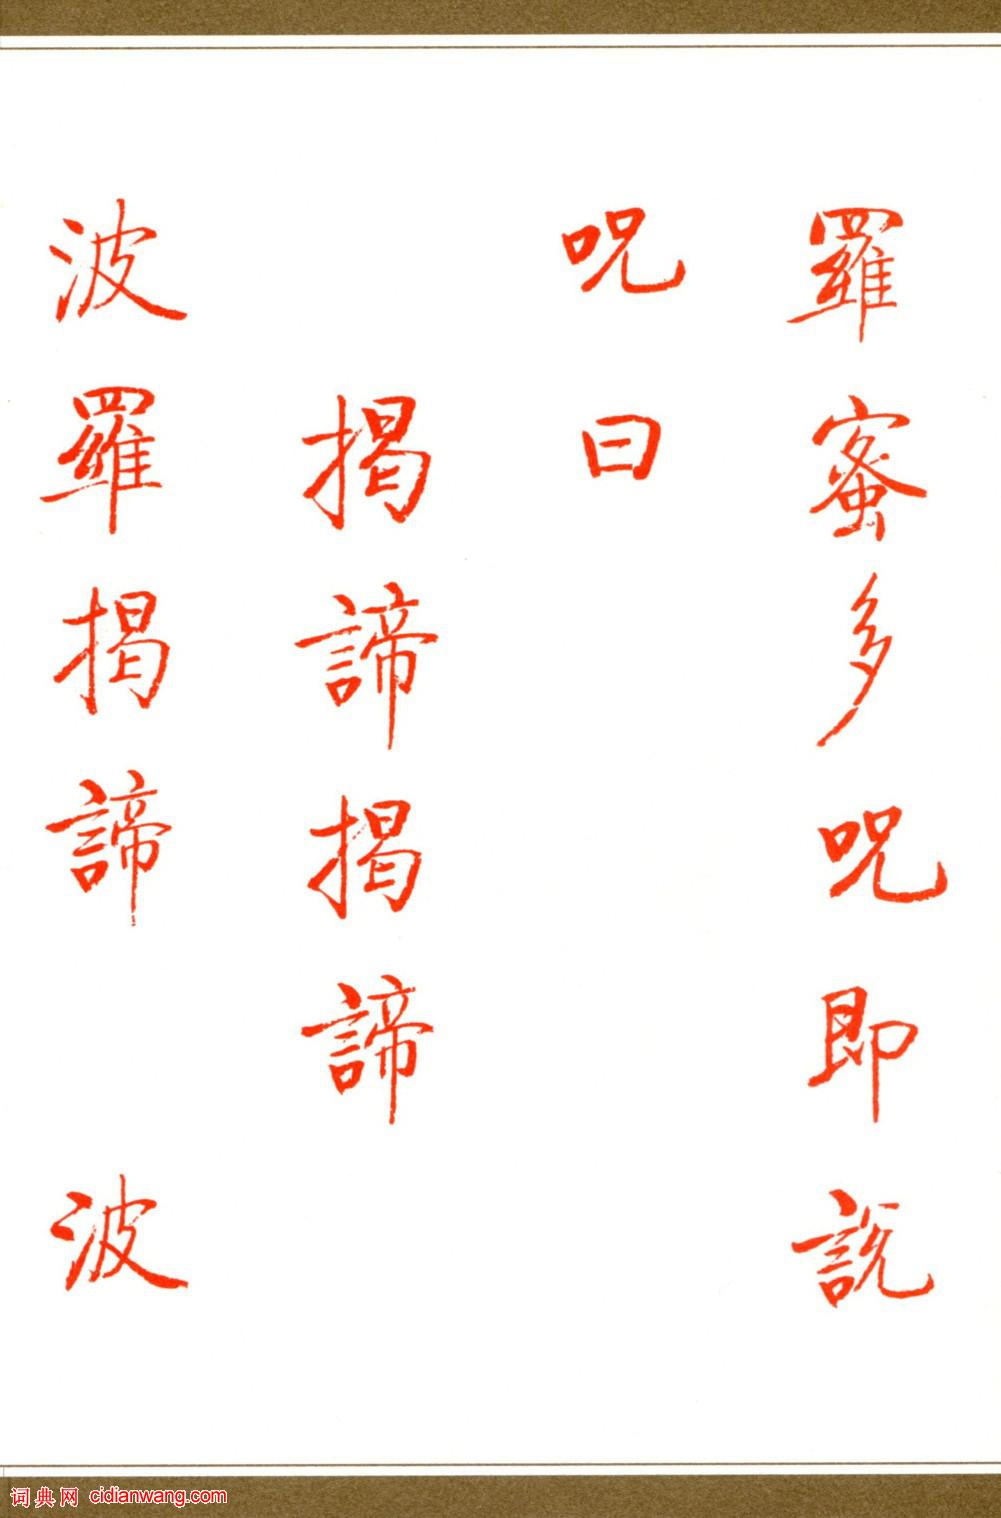 羅蜜多呪即説
呪曰
揭諦揭諦
波羅揭諦 波
词典网 cidianwang.com